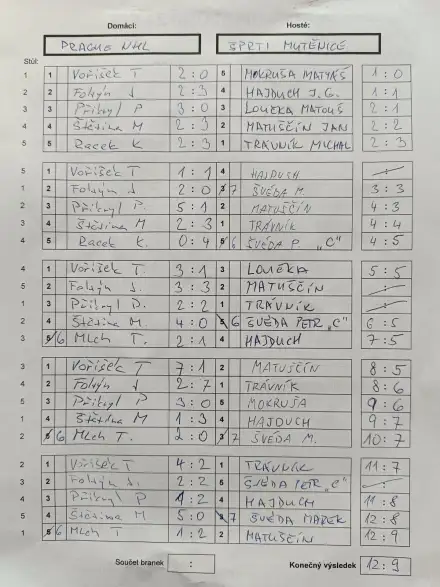 Domácí: Hosté:
PRAGUE NHL ŠPRTI MUTĚNICE
Stůl:
1 1 Voříšek T 2:0 5 MOKRUŠA MATYÁŠ 1:0
2 2 Foltýn J 2:3 4 HAJDUCH J.G. 1:1
3 3 Přikryl P 3:0 3 LOUČKA MATOUŠ 2:1
4 4 Štětina M 2:3 2 MATUŠČÍN JAN 2:2
5 5 Racek K. 2:3 1 TRÁVNÍK MICHAL 2:3
5 1 Voříšek T 1:1 4 HAJDUCH :
1 2 Foltýn J 2:0 7 ŠVÉDA M. 3:3
2 3 Přikryl P 5:1 2 MATUŠČÍN 4:3
3 4 Štětina M 2:3 1 TRÁVNÍK 4:4
4 5 Racek K. 0:4 5/6 ŠVÉDA P. "C" 4:5
4 1 Voříšek T. 3:1 3 LOUČKA 5:5
5 2 Foltýn J. 3:3 2 MATUŠČÍN :
1 3 Přikryl P. 2:2 1 TRÁVNÍK :
2 4 Štětina M. 4:0 5 6 ŠVÉDA PETR "C" 6:5
3 5/6 Mlch T. 2:1 4 HAJDUCH 7:5
3 1 Voříšek T 7:1 2 MATUŠČÍN 8:5
4 2 Foltýn J 2:7 1 TRÁVNÍK 8:6
5 3 Přikryl P 3:0 5 MOKRUŠA 9:6
1 4 Štětina M 1:3 4 HAJDUCH 9:7
2 5/6 Mlch T. 2:0 3/7 ŠVÉDA M. 10:7
2 1 Voříšek T 4:2 1 TRÁVNÍK 11:7
3 2 Foltýn J. 2:2 5 ŠVÉDA PETR "C" :
4 3 Přikryl P 1:2 4 HAJDUCH 11:8
5 4 Štětina M 5:0 7 ŠVÉDA MAREK 12:8
1 5/6 Mlch T 1:2 2 MATUŠČÍN 12:9
Součet branek : Konečný výsledek 12:9